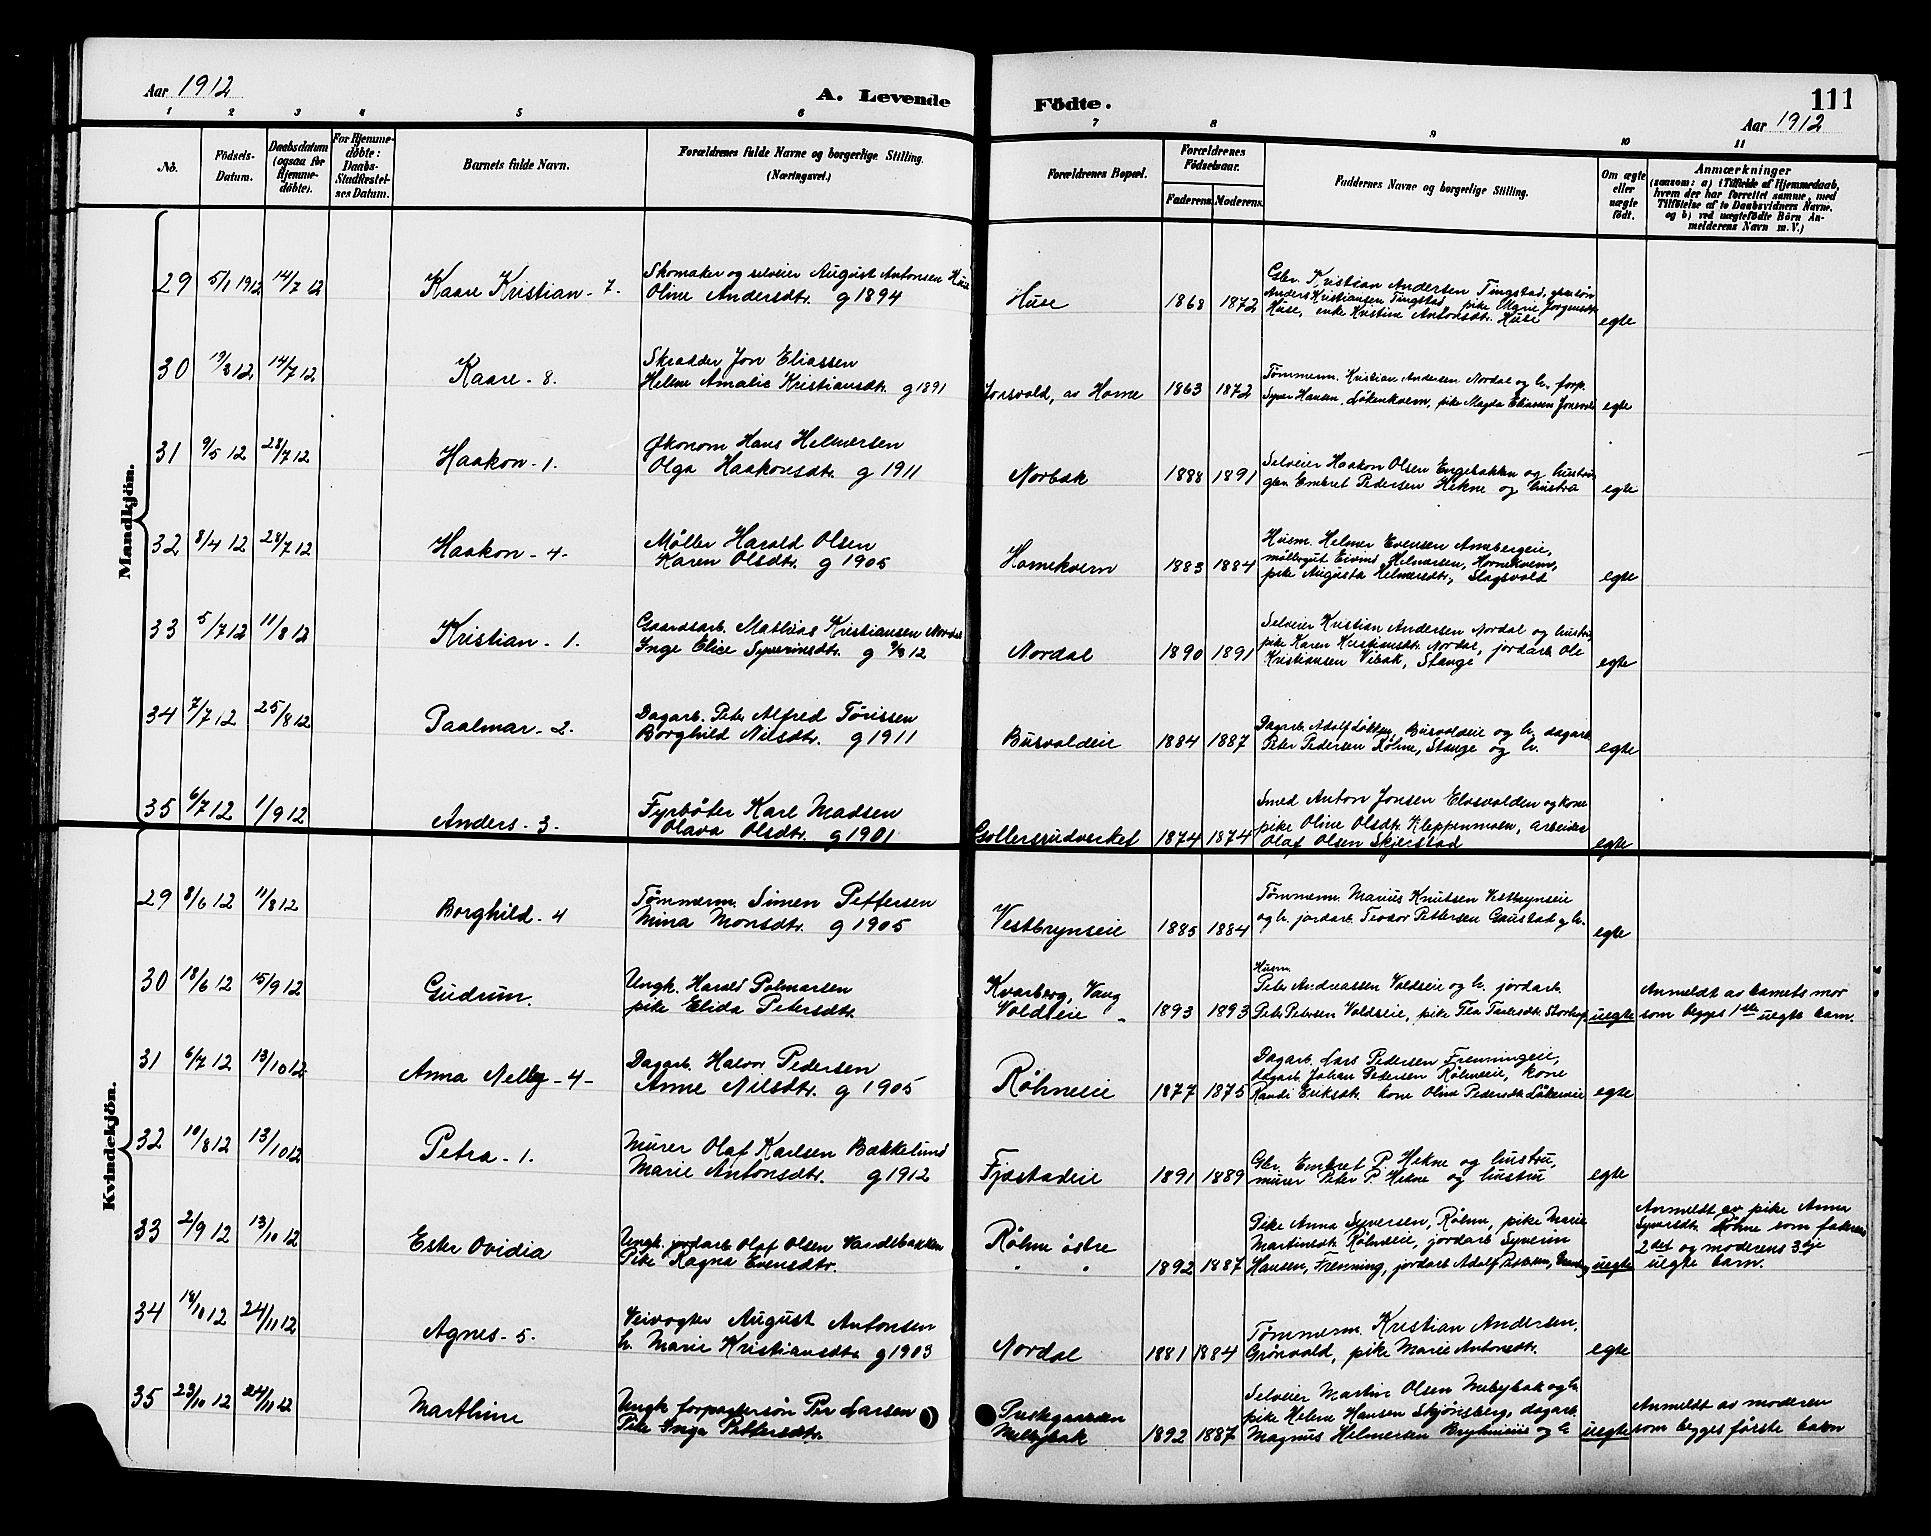 Aar 1912
A. Levende
Födte.
111
Aar 1912
1 2 3 4 5 6 7 8 9 10 11
No.
Födsels-
Datum.
Daabsdatum
(ogsaa for
Hjemme-
döbte).
For Hjemme-
döbte:
Daabs-
Stadfæstel-
ses Datum.
Barnets fulde Navn.
Forældrenes fulde Navne og borgerlige Stilling.
(Næringsvei.)
Forældrenes Bopæl.
Forældrenes
Födselsaar.
Faderens. Moderens.
Faddernes Navne og borgerlige Stilling.
Om ægte
eller
uægte
födt.
Anmærkninger
(saasom: a) i Tilfælde af Hjemmedaab,
hvem der har forrettet samme, med
Tilföielse af to Daabsvidners Navne,
og b) ved uægtefödte Börn An-
melderens Navn m. V.)
Mandkjön.
29 5/1 1912 14/7 12 Kaare Kristian - 7.
Skomaker og selveier August Antonsen Huse
Oline Andersdtr. g 1894
Huse 1868 1872
Gbr. Kristian Andersen Tingstad,
Anders Kristiansen Tingstad, pike Marie Jørgensdtr.
Huse, enke Kristine Antonsdtr. Huse
egte
30 19/3 12 14/7 12 Kaare - 8.
Skrædder Jon Eliassen
Helene Amalie Kristiansdtr. g 1891
Jonsvold, av Horne 1863 1872
Tømmerm. Kristian Andersen Nordal og h. forp.
Syver Hansen, Løkenkvern, pike Magda Eliassen Jonsvold
egte
31 9/5 12 28/7 12 Haakon - 1.
Økonom Hans Helmersen
Olga Haakonsdtr. g 1911
Norbæk 1888 1891
Selveier Haakon Olsen Engebakken og hustru
gbr. Embret Pedersen Hekne og hustru
egte
32 8/4 12 28/7 12 Haakon - 4.
Møller Harald Olsen
Karen Olsdtr. g 1905
Hornekvern 1883 1884
Husm. Helmer Evensen Arnebergeie,
møllergut Eivind Helmersen, Hornekvern,
pike Augusta Helmersdtr, Slagsvold
egte
33 5/7 12 11/8 12 Kristian - 1.
Gaardsarb. Mathias Kristiansen Nordal
Inge Elise Syverinsdtr. g 9/3 12
Nordal 1890 1891
Selveier Kristian Andersen Nordal og hustru,
pike Karen Kristiansdtr. Nordal, jordarb. Ole
Kristiansen Vibæk, Stange
egte
34 7/7 12 25/8 12 Paalmar - 2.
Dagarb. Peter Alfred Tørissen
Borghild Nilsdtr. g 1911
Busvoldeie 1884 1887
Dagarb. Adolf Løkken, Busvoldeie og h. dagarb.
Peter Pedersen Røhne, Stange og h.
egte
35 6/7 12 1/9 12 Anders - 3.
Fyrbøter Karl Madsen
Olava Olsdtr. g 1901
Gollersrudverket 1874 1874
Smed Anton Jonsen Elvsvolden og kone
pike Oline Olsdtr. Kleppenmoen, arbeider
Olaf Olsen Skjerstad
egte
Kvindekjön.
29 8/6 12 11/8 12 Borghild - 4
Tømmerm. Simen Pettersen
Mina Monsdtr. g 1905
Vestbrynseie 1885 1884
Tømmerm. Marius Knutsen Vestbrynseie
og h. jordarb. Teodor Pettersen Gaustad og h.
egte
30 18/6 12 15/9 12 Gudrun.
Ungk. Harald Palmarsen
pike Elida Petersdtr.
Kvarberg, Vang
Voldseie - 1893 1893
Husm.
Peter Andreassen Voldseie og h. jordarb.
Peter Petersen Voldseie, pike
uegte
Anmeldt av barnets mor
som begges 1ste uegte barn.
31 6/7 12 13/10 12 Anna Nelly - 4 -
Dagarb. Halvor Pedersen
Anne Nilsdtr. g 1905
Røhneeie 1877 1875
Dagarb. Lars Pedersen Frenningeie,
dagarb. Johan Pedersen Røhneeie, kone
Randi Eriksdtr. kone Oline Pedersdtr. Løkeneie
egte
32 19/8 12 13/10 12 Petra - 1.
Murer Olaf Karlsen Bækkelund
Marie Antonsdtr. g 1912
Fjæstadeie 1891 1889
Gbr. Embret P. Hekne og hustru,
murer Peter P. Hekne og hustru
egte
33 2/9 12 13/10 12 Ester Ovidia
Ungk. jordarb. Olaf Olsen Vardebakken
Pike Ragna Evensdtr.
Røhne østre
" " 1892 1887
Pike Anna Syversen, Røhne, pike Marie
Martinsdtr. Røhneeie, jordarb. Syverin
Hansen, Frenning, jordarb. Adolf
uegte
Anmeldt av pike Anna
Syversdtr. Røhne som faderens
2det og moderens 3dje
uegte barn.
34 18/10 12 24/11 12 Agnes - 5.
Veivogter August Antonsen
h. Marie Kristiansdtr. g 1903
Nordal 1881 1884
Tømmerm. Kristian Andersen,
Grønvold, pike Marie Antonsdtr.
egte
35 23/10 12 24/11 12 Marthine
Ungk. forpaktersøn Per Larsen
Pike Inga Pettersdtr.
Prestegaarden
Melbybæk 1892 1887
Selveier Martin Olsen Melbybæk og h.
pike Helene Hansen Skjønsberg, dagarb.
Magnus Helmersen Brynieie og h
uegte
Anmeldt av moderen
som begges første barn